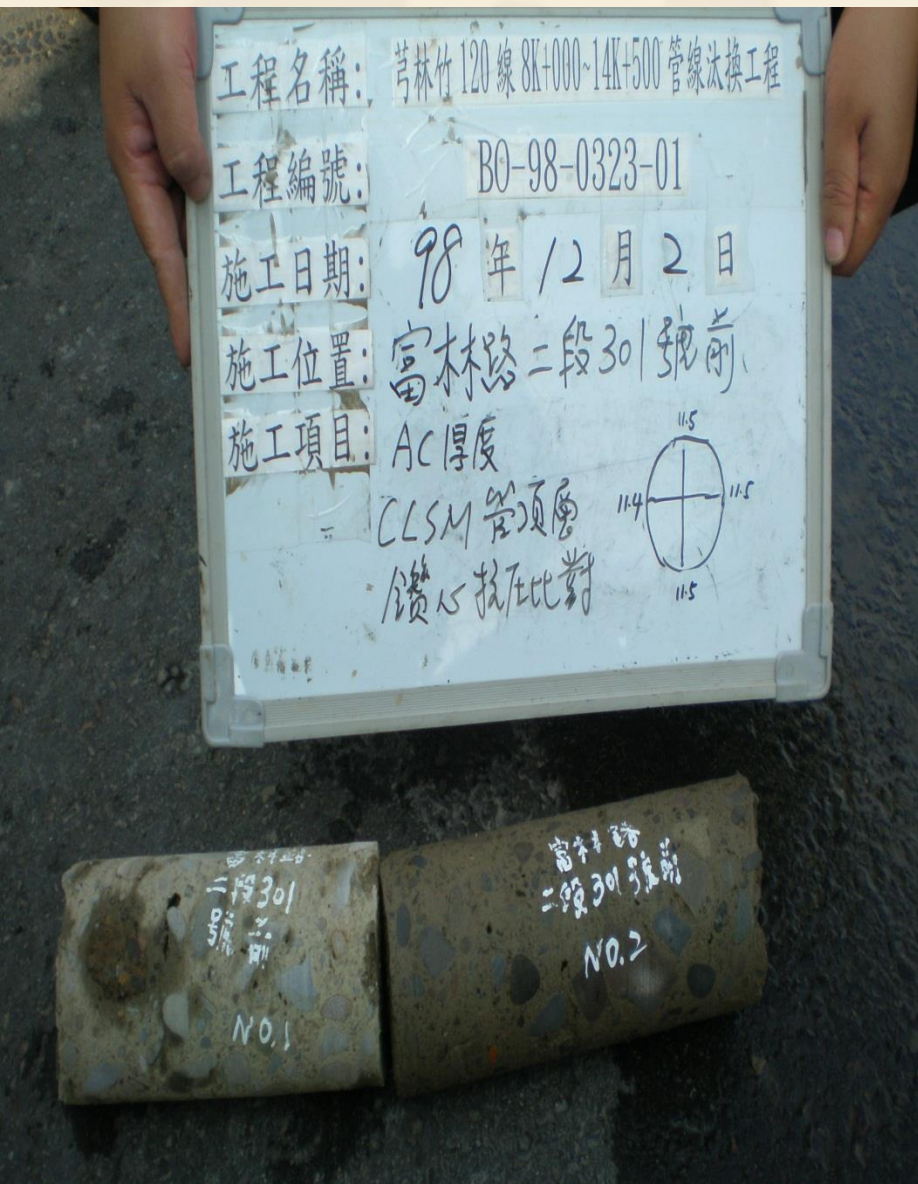 工程名稱: 芎林竹120線8K+000~14K+500管線汰換工程
工程編號: BO-98-0323-01
施工日期: 98年12月2日
施工位置: 富林路二段301號前
施工項目: AC厚度
CLSM管頂層
鑽心抗壓比對
11.5
11.4
11.5
11.5
富林路
二段301
號前
NO.1
富林路
二段301號前
NO.2